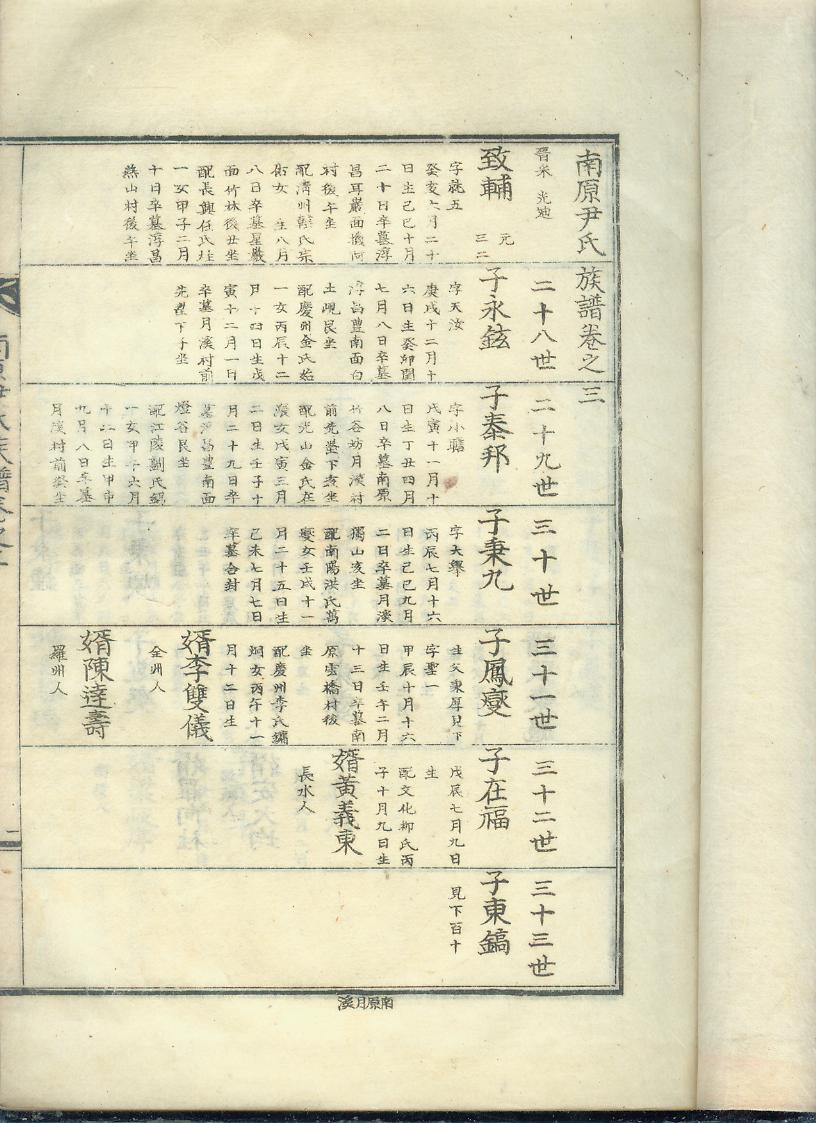 南原尹氏族譜卷之三
致輔
字就五
癸亥六月二十
日生己巳十月
二十日卒墓淳
昌耳巖面
村後午坐
配淸州韓氏宗
女 生八月
八日卒墓星巖
面竹林後丑坐
配長興任氏
一女甲子二月
十日卒墓淳昌
燕山村後午坐
二十八世
子永鉉
字天汝
庚戌十二月十
六日生癸卯閏
七月八日卒墓
淳昌豊南面白
土峴艮坐
配慶州金氏始
一女丙辰十二
月十四日生戊
寅十二月一日
卒墓月溪村前
先塋下子坐
二十九世
子泰邦
字小
戊寅十一月十
日生丁丑四月
八日卒墓南原
竹谷坊月溪村
前先塋下艮坐
配光山金氏在
女戊寅三月
二日生壬子十
月二十九日卒
墓淳昌豊南面
燈谷艮坐
配江陵劉氏
一女甲午六月
十二日生甲申
九月八日卒墓
月溪村前癸坐
三十世
子秉九
字大擧
丙辰七月十六
日生己巳九月
二日卒墓月溪
獨山亥坐
配南陽洪氏萬
燮女壬戌十一
月二十五日生
己未七月七日
卒墓合封
三十一世
子鳳燮
生父秉厚見下
字聖一
甲辰十月十六
日生壬午二月
十三日卒墓南
原雲橋村後
坐
配慶州李氏
炯女丙午十一
月十二日生
婿李雙儀
全州人
婿陳達壽
羅州人
三十二世
子在福
戊辰七月九日
生
配文化柳氏丙
子十月九日生
婿黃義東
長水人
三十三世
子東鎬
見下百十
南原月溪